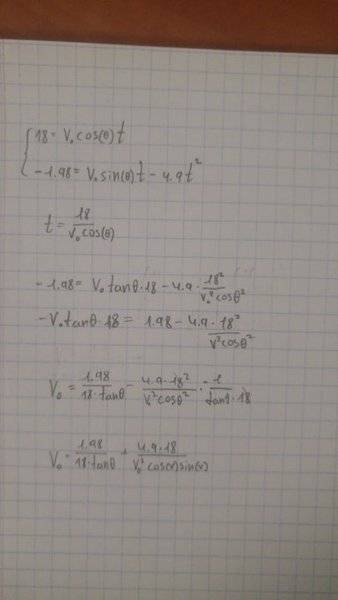 18 = V₀ cos(θ) t
-1.98 = V₀ sin(θ) t - 4.9 t²
t = 18 / (V₀ cos(θ))
-1.98 = V₀ tanθ · 18 - 4.9 · 18² / (V₀² cosθ²)
-V₀ tanθ · 18 = 1.98 - 4.9 · 18² / (V² cosθ²)
V₀ = 1.98 / (18 · tanθ) - 4.9 · 18² / (V² cosθ²) · -1 / (tanθ · 18)
V₀ = 1.98 / (18 · tanθ) + 4.9 · 18 / (V₀² cos(x) sin(x))